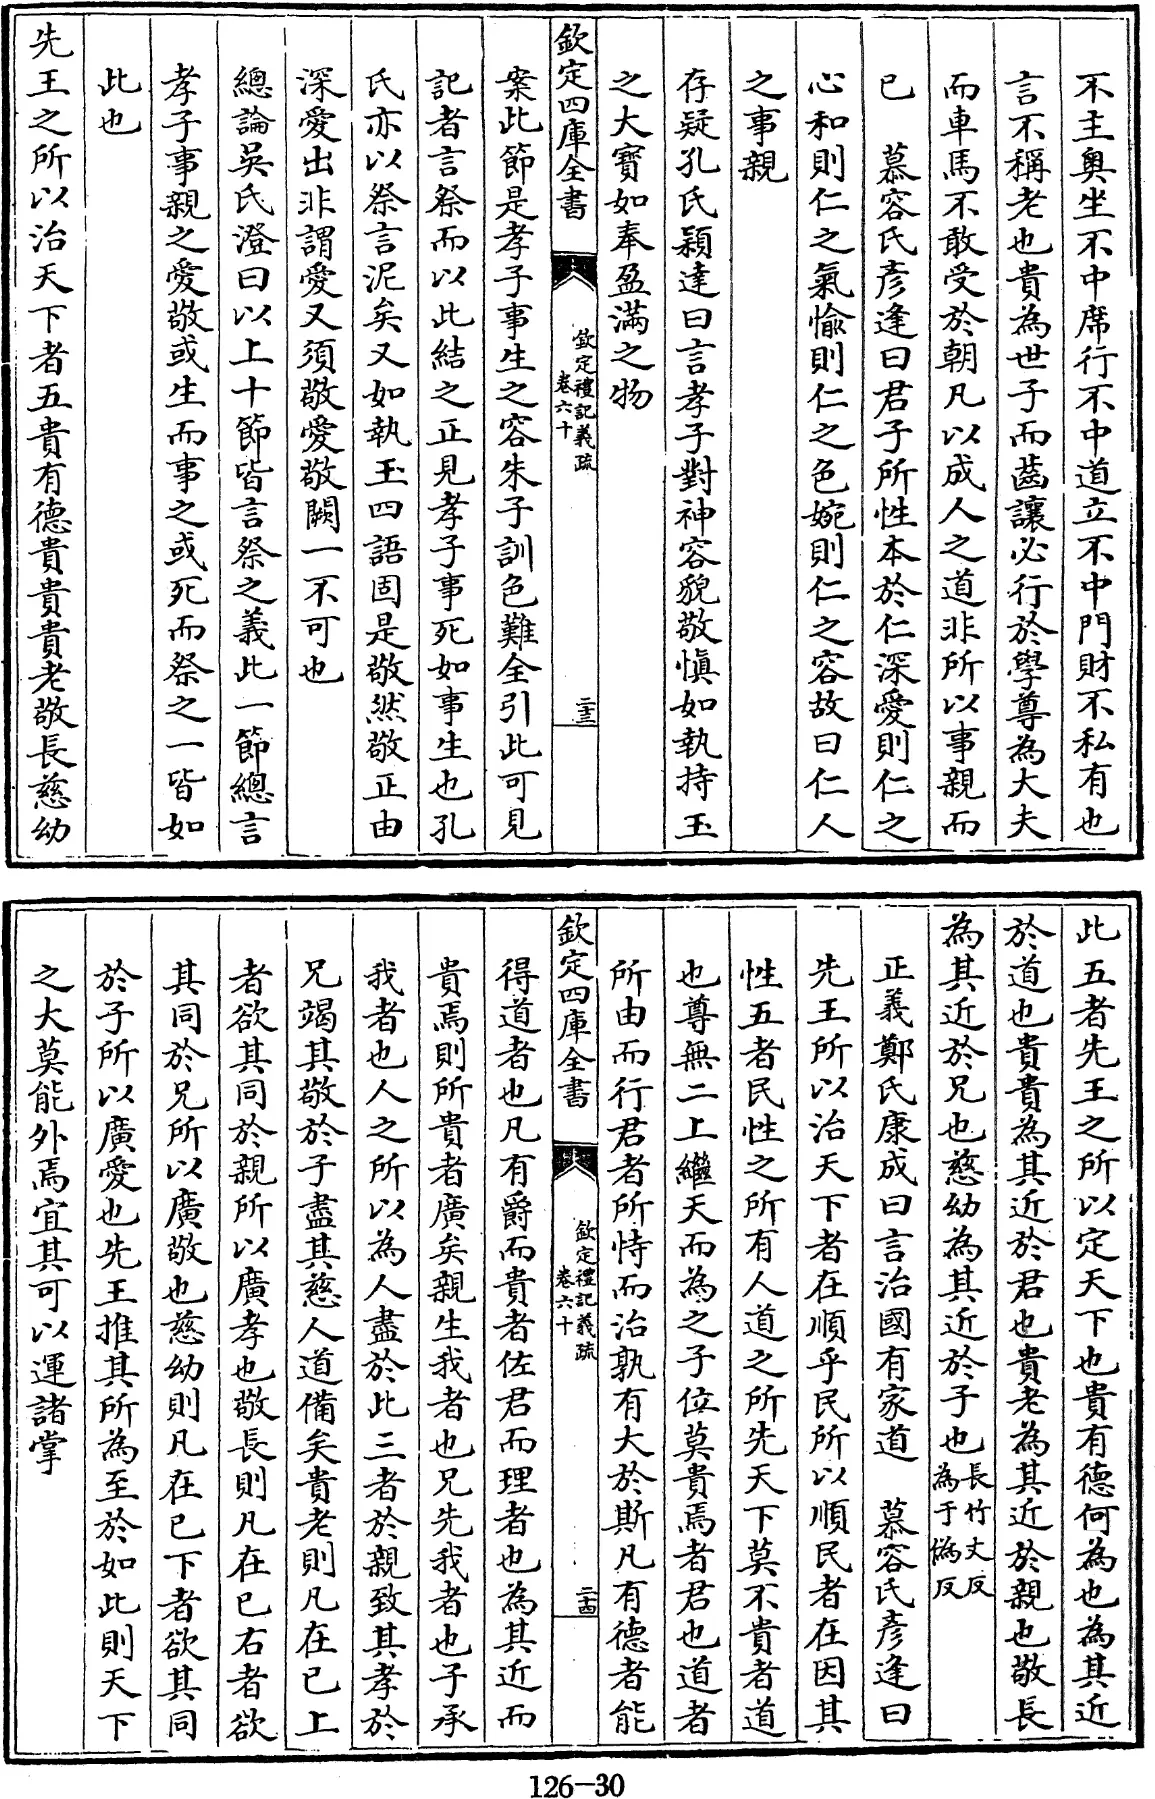 不主奥坐不中席行不中道立不中門財不私有也
言不稱老也貴為世子而齒讓必行於學尊為大夫
而車馬不敢受於朝凡以成人之道非所以事親而
已　慕容氏彥逢曰君子所性本於仁深愛則仁之
心和則仁之氣愉則仁之色婉則仁之容故曰仁人
之事親
存疑孔氏穎達曰言孝子對神容貌敬慎如執持玉
之大寳如奉盈滿之物
欽定四庫全書
欽定禮記義疏
卷六十
二十三
案此節是孝子事生之容朱子訓色難全引此可見
記者言祭而以此結之正見孝子事死如事生也孔
氏亦以祭言泥矣又如執玉四語固是敬然敬正由
深愛出非謂愛又須敬愛敬闕一不可也
總論吳氏澄曰以上十節皆言祭之義此一節總言
孝子事親之愛敬或生而事之或死而祭之一皆如
此也
先王之所以治天下者五貴有德貴貴貴老敬長慈幼
此五者先王之所以定天下也貴有德何為也為其近
於道也貴貴為其近於君也貴老為其近於親也敬長
為其近於兄也慈幼為其近於子也長竹丈反為于偽反
正義鄭氏康成曰言治國有家道　慕容氏彥逢曰
先王所以治天下者在順乎民所以順民者在因其
性五者民性之所有人道之所先天下莫不貴者道
也尊無二上繼天而為之子位莫貴焉者君也道者
所由而行君者所恃而治孰有大於斯凡有德者能
欽定四庫全書
欽定禮記義疏
卷六十
二十四
得道者也凡有爵而貴者佐君而理者也為其近而
貴焉則所貴者廣矣親生我者也兄先我者也子承
我者也人之所以為人盡於此三者於親致其孝於
兄竭其敬於子盡其慈人道備矣貴老則凡在已上
者欲其同於親所以廣孝也敬長則凡在已右者欲
其同於兄所以廣敬也慈幼則凡在已下者欲其同
於子所以廣愛也先王推其所為至於如此則天下
之大莫能外焉宜其可以運諸掌
126-30